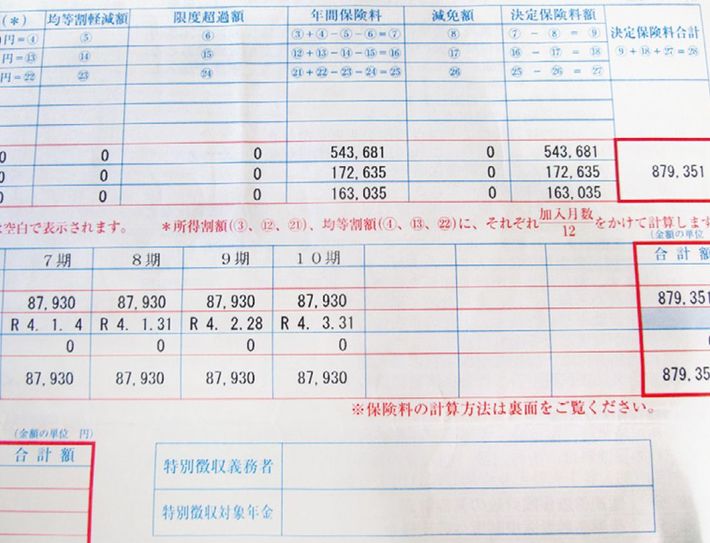 (*) 均等割軽減額 限度超過額 年間保険料 減免額 決定保険料額 決定保険料合計
円=④ ⑤ ⑥ ③+④-⑤-⑥=⑦ ⑧ ⑦-⑧=⑨ ⑨+⑱+㉗=㉘
円=⑬ ⑭ ⑮ ⑫+⑬-⑭-⑮=⑯ ⑰ ⑯-⑰=⑱
円=㉒ ㉓ ㉔ ㉑+㉒-㉓-㉔=㉕ ㉖ ㉕-㉖=㉗
0 0 0 543,681 0 543,681
0 0 0 172,635 0 172,635 879,351
0 0 0 163,035 0 163,035
空白で表示されます。 *所得割額(③、⑫、㉑)、均等割額(④、⑬、㉒)に、それぞれ加入月数/12をかけて計算しま
(金額の単位
7期 8期 9期 10期 合計額
87,930 87,930 87,930 87,930 879,351
R 4. 1. 4 R 4. 1.31 R 4. 2.28 R 4. 3.31
0 0 0 0
87,930 87,930 87,930 87,930 879,35
※保険料の計算方法は裏面をご覧ください。
(金額の単位 円)
合計額
特別徴収義務者
特別徴収対象年金